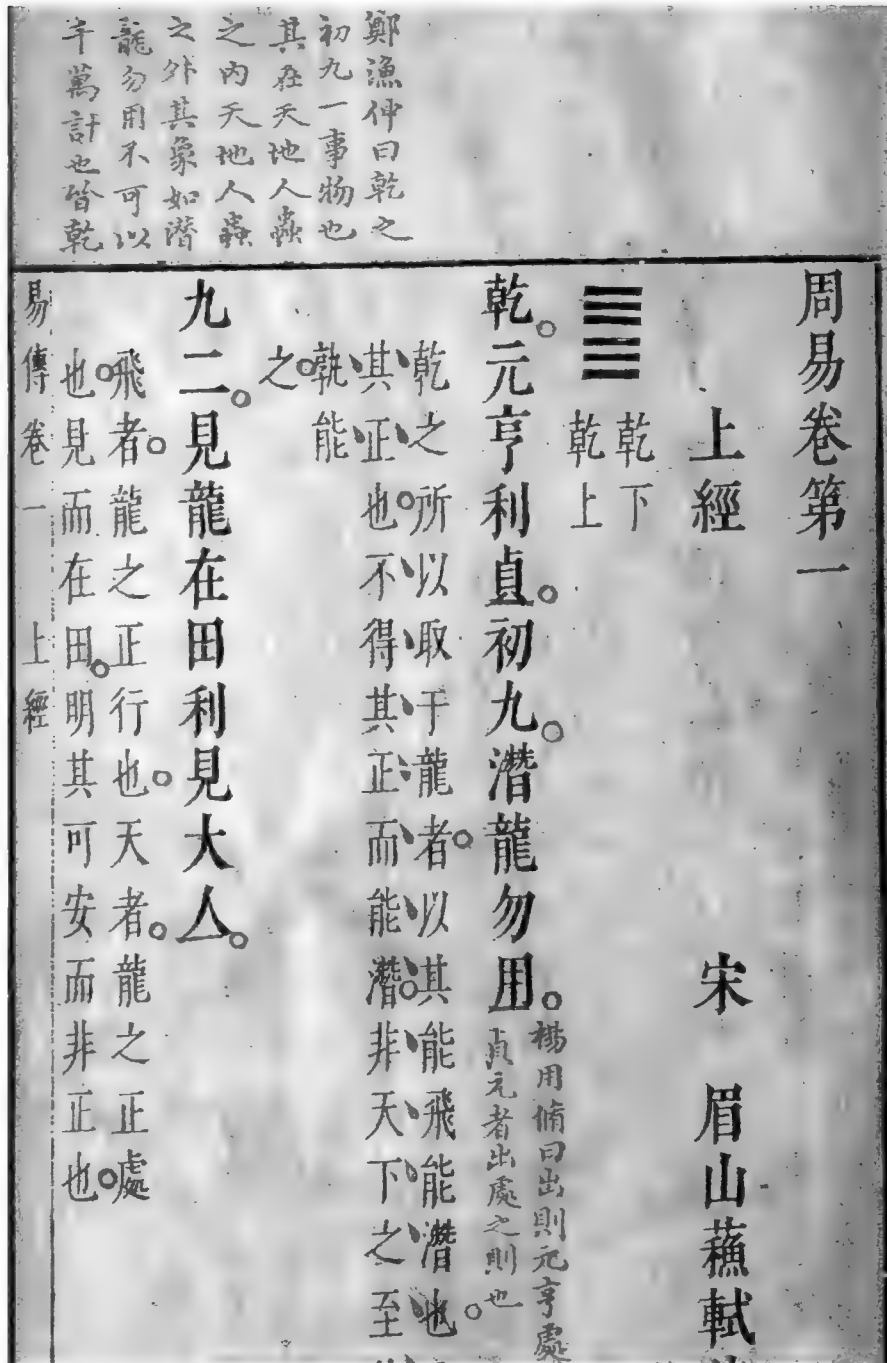 鄭漁仲曰乾之
初九一事物也
其在天地人蟲
之內天地人蟲
之外其象如潛
龍勿用不可以
半萬計也皆乾
周易卷第一
上經 宋 眉山蘓軾
乾下
乾上
乾。元亨利貞。初九。潛龍勿用。
楊用脩曰出則元亨處
貞元者出處之則也
乾之所以取于龍者。以其能飛能潛也。
其正也。不得其正而能潛。非天下之至
孰能
之。
九二。見龍在田利見大人。
飛者。龍之正行也。天者。龍之正處
也。見而在田。明其可安而非正也。
易傳卷一 上經